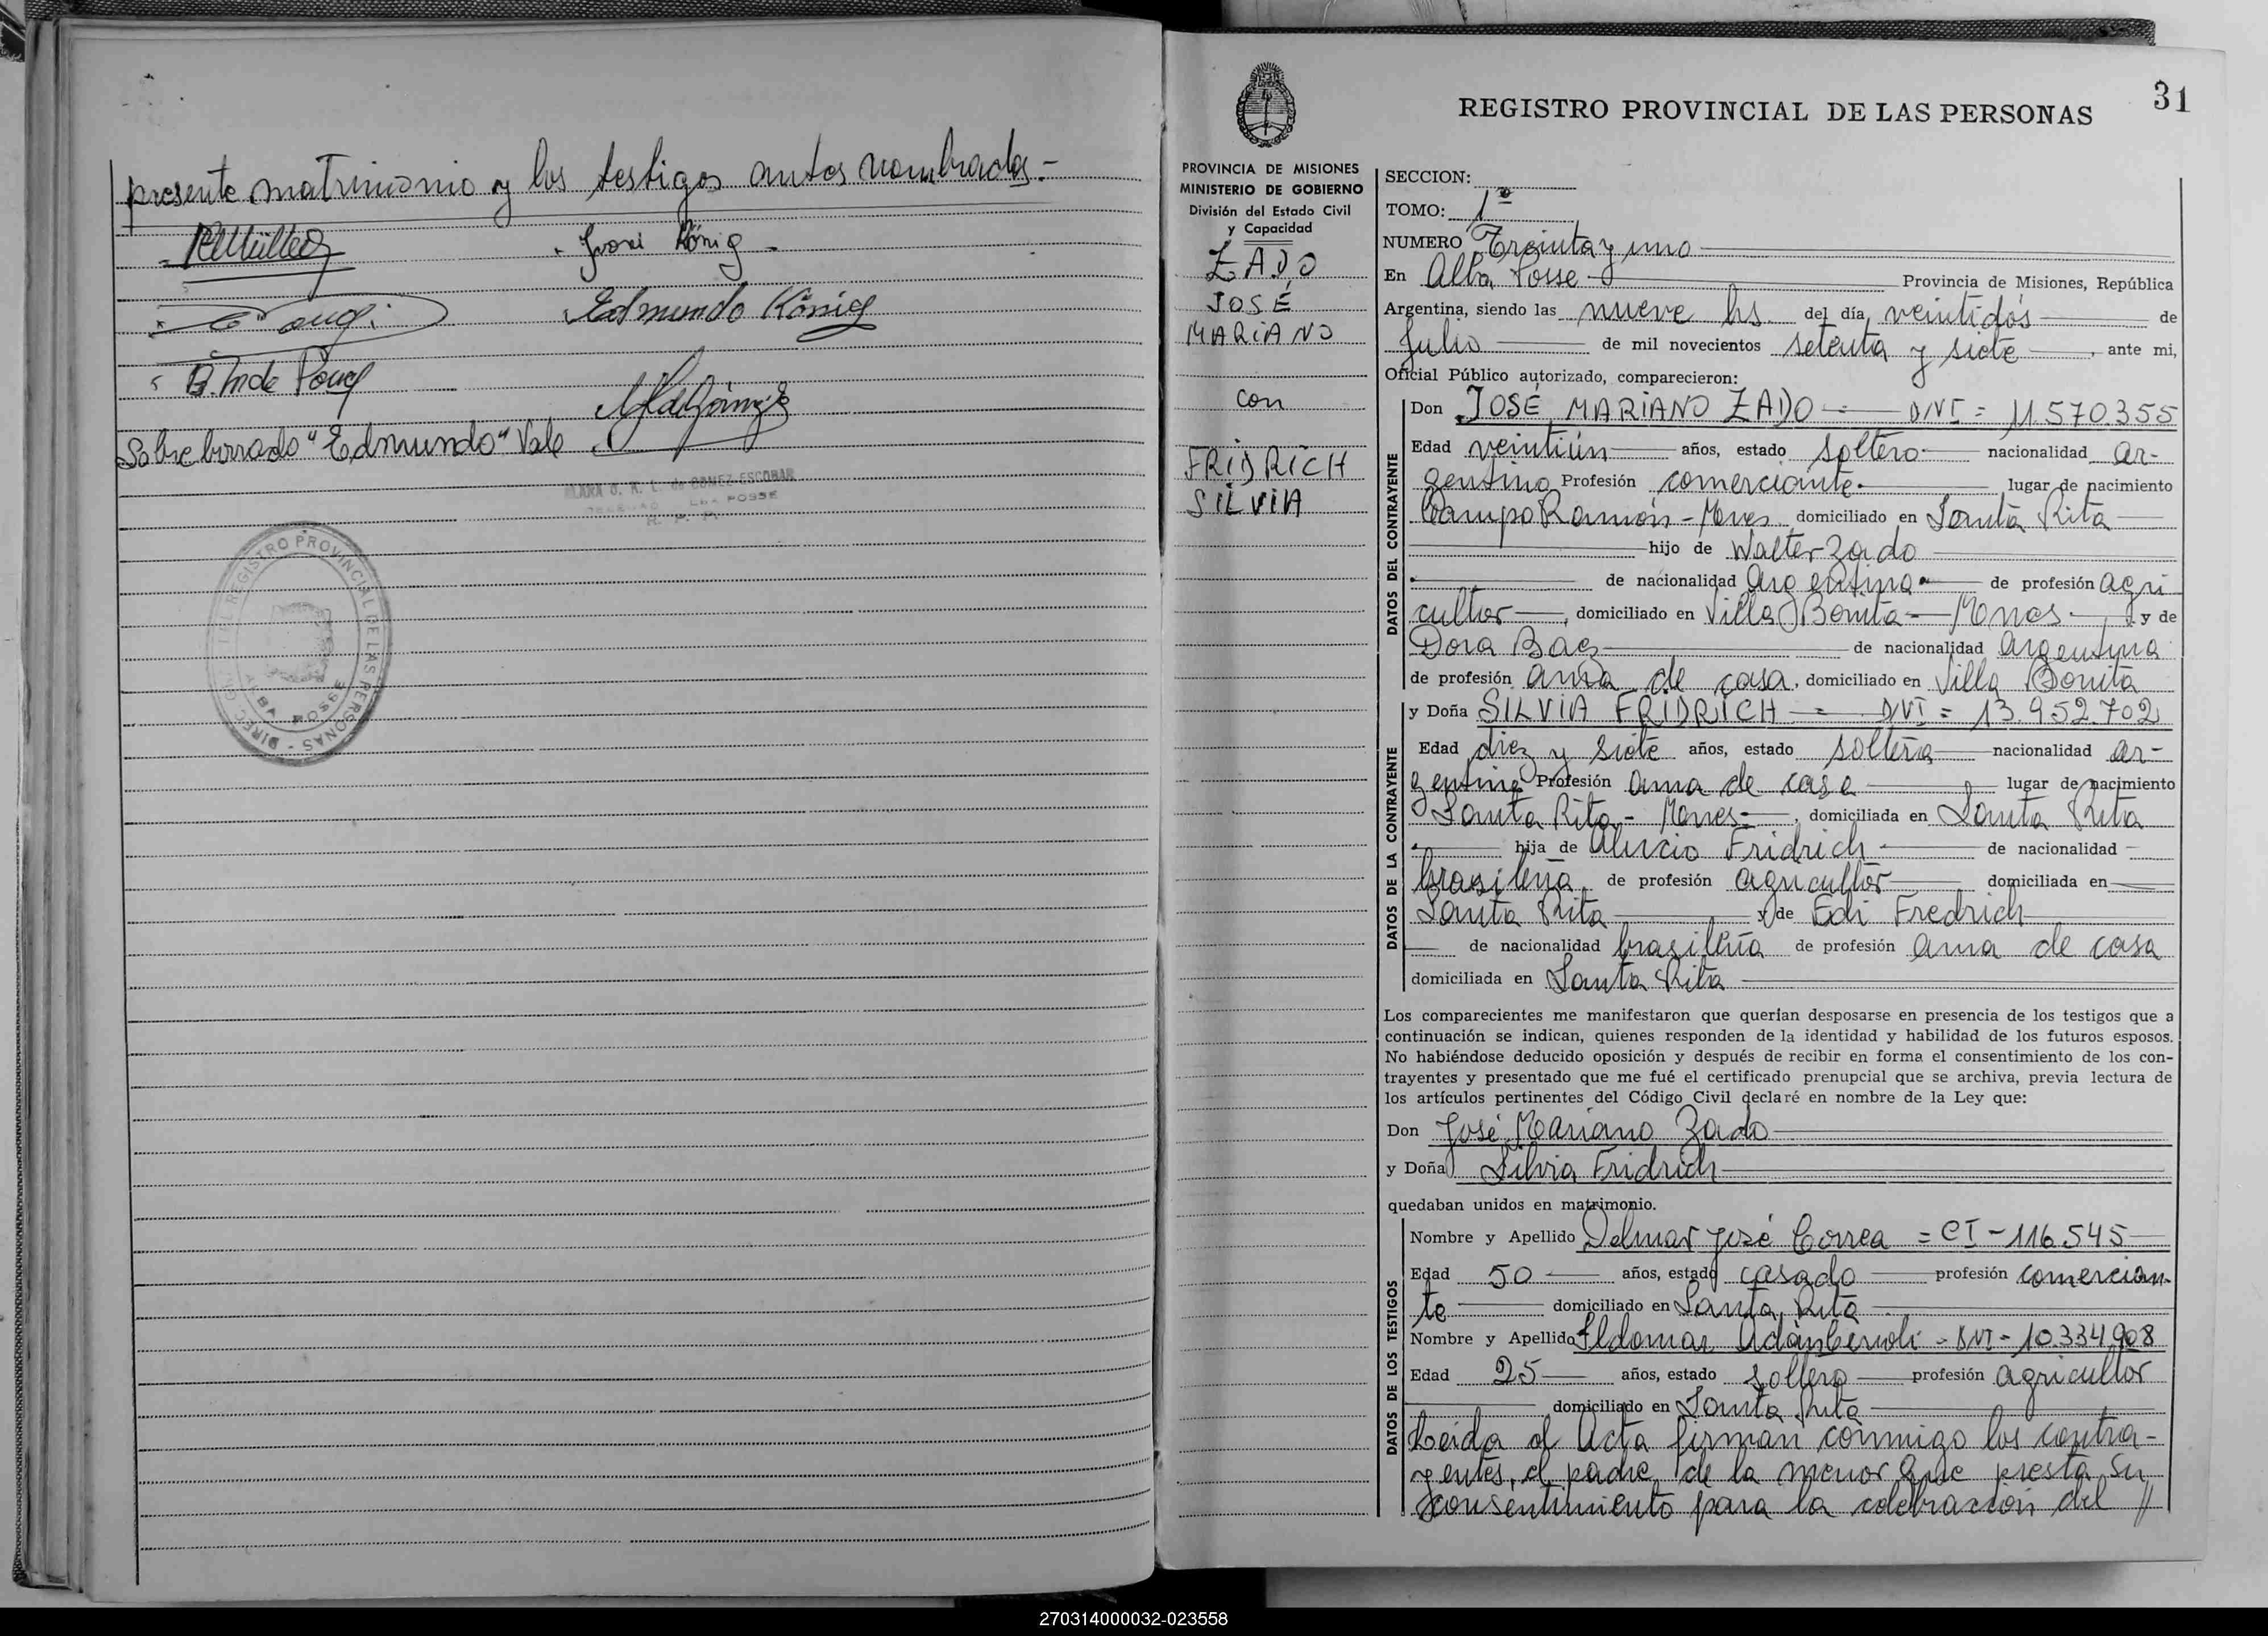 presente matrimonio y los testigos antes nombrados.-
Ivoni König
Edmundo König
B. M de
Sobre borrado "Edmundo" Vale
CLARA de GOMEZ ESCOBAR
POSSE
DIREC. GRAL. DEL REGISTRO PROVINCIAL DE LAS PERSONAS
ALBA POSSE
31
REGISTRO PROVINCIAL DE LAS PERSONAS
PROVINCIA DE MISIONES
MINISTERIO DE GOBIERNO
División del Estado Civil
y Capacidad
ZADO
JOSÉ
MARIANO
con
FRIDRICH
SILVIA
SECCION:
TOMO: 1º
NUMERO Treinta y uno
En Alba Posse Provincia de Misiones, República
Argentina, siendo las nueve hs. del día, veintidós de
Julio de mil novecientos setenta y siete, ante mi,
Oficial Público autorizado, comparecieron:
DATOS DEL CONTRAYENTE
Don JOSÉ MARIANO ZADO = DNI = 11.570.355
Edad veintiún años, estado soltero nacionalidad ar-
gentino Profesión comerciante. lugar de nacimiento
Campo Ramón - Mnes domiciliado en Santa Rita
hijo de Walter Zado
de nacionalidad argentina de profesión agri
cultor, domiciliado en Villa Bonita - Mnes y de
Dora Baez de nacionalidad argentina
de profesión ama de casa, domiciliado en Villa Bonita
DATOS DE LA CONTRAYENTE
y Doña SILVIA FRIDRICH = DNI = 13.952.702
Edad diez y siete años, estado soltera nacionalidad ar-
gentina Profesión ama de casa lugar de nacimiento
Santa Rita - Mnes, domiciliada en Santa Rita
hija de Aluizio Fridrich de nacionalidad
brasileña de profesión agricultor domiciliada en
Santa Rita y de Edi Fredrich
de nacionalidad brasileña de profesión ama de casa
domiciliada en Santa Rita
Los comparecientes me manifestaron que querían desposarse en presencia de los testigos que a
continuación se indican, quienes responden de la identidad y habilidad de los futuros esposos.
No habiéndose deducido oposición y después de recibir en forma el consentimiento de los con-
trayentes y presentado que me fué el certificado prenupcial que se archiva, previa lectura de
los artículos pertinentes del Código Civil declaré en nombre de la Ley que:
Don José Mariano Zado
y Doña Silvia Fridrich
quedaban unidos en matrimonio.
DATOS DE LOS TESTIGOS
Nombre y Apellido Delmar José Correa = CI - 116.545
Edad 50 años, estado casado profesión comercian-
te domiciliado en Santa Rita
Nombre y Apellido Ildomar - DNI - 10.334.908
Edad 25 años, estado soltero profesión agricultor
domiciliado en Santa Rita
Leida el Acta firman conmigo los contra-
yentes, el padre de la menor que presta su
consentimiento para la celebración del //
270314000032-023558